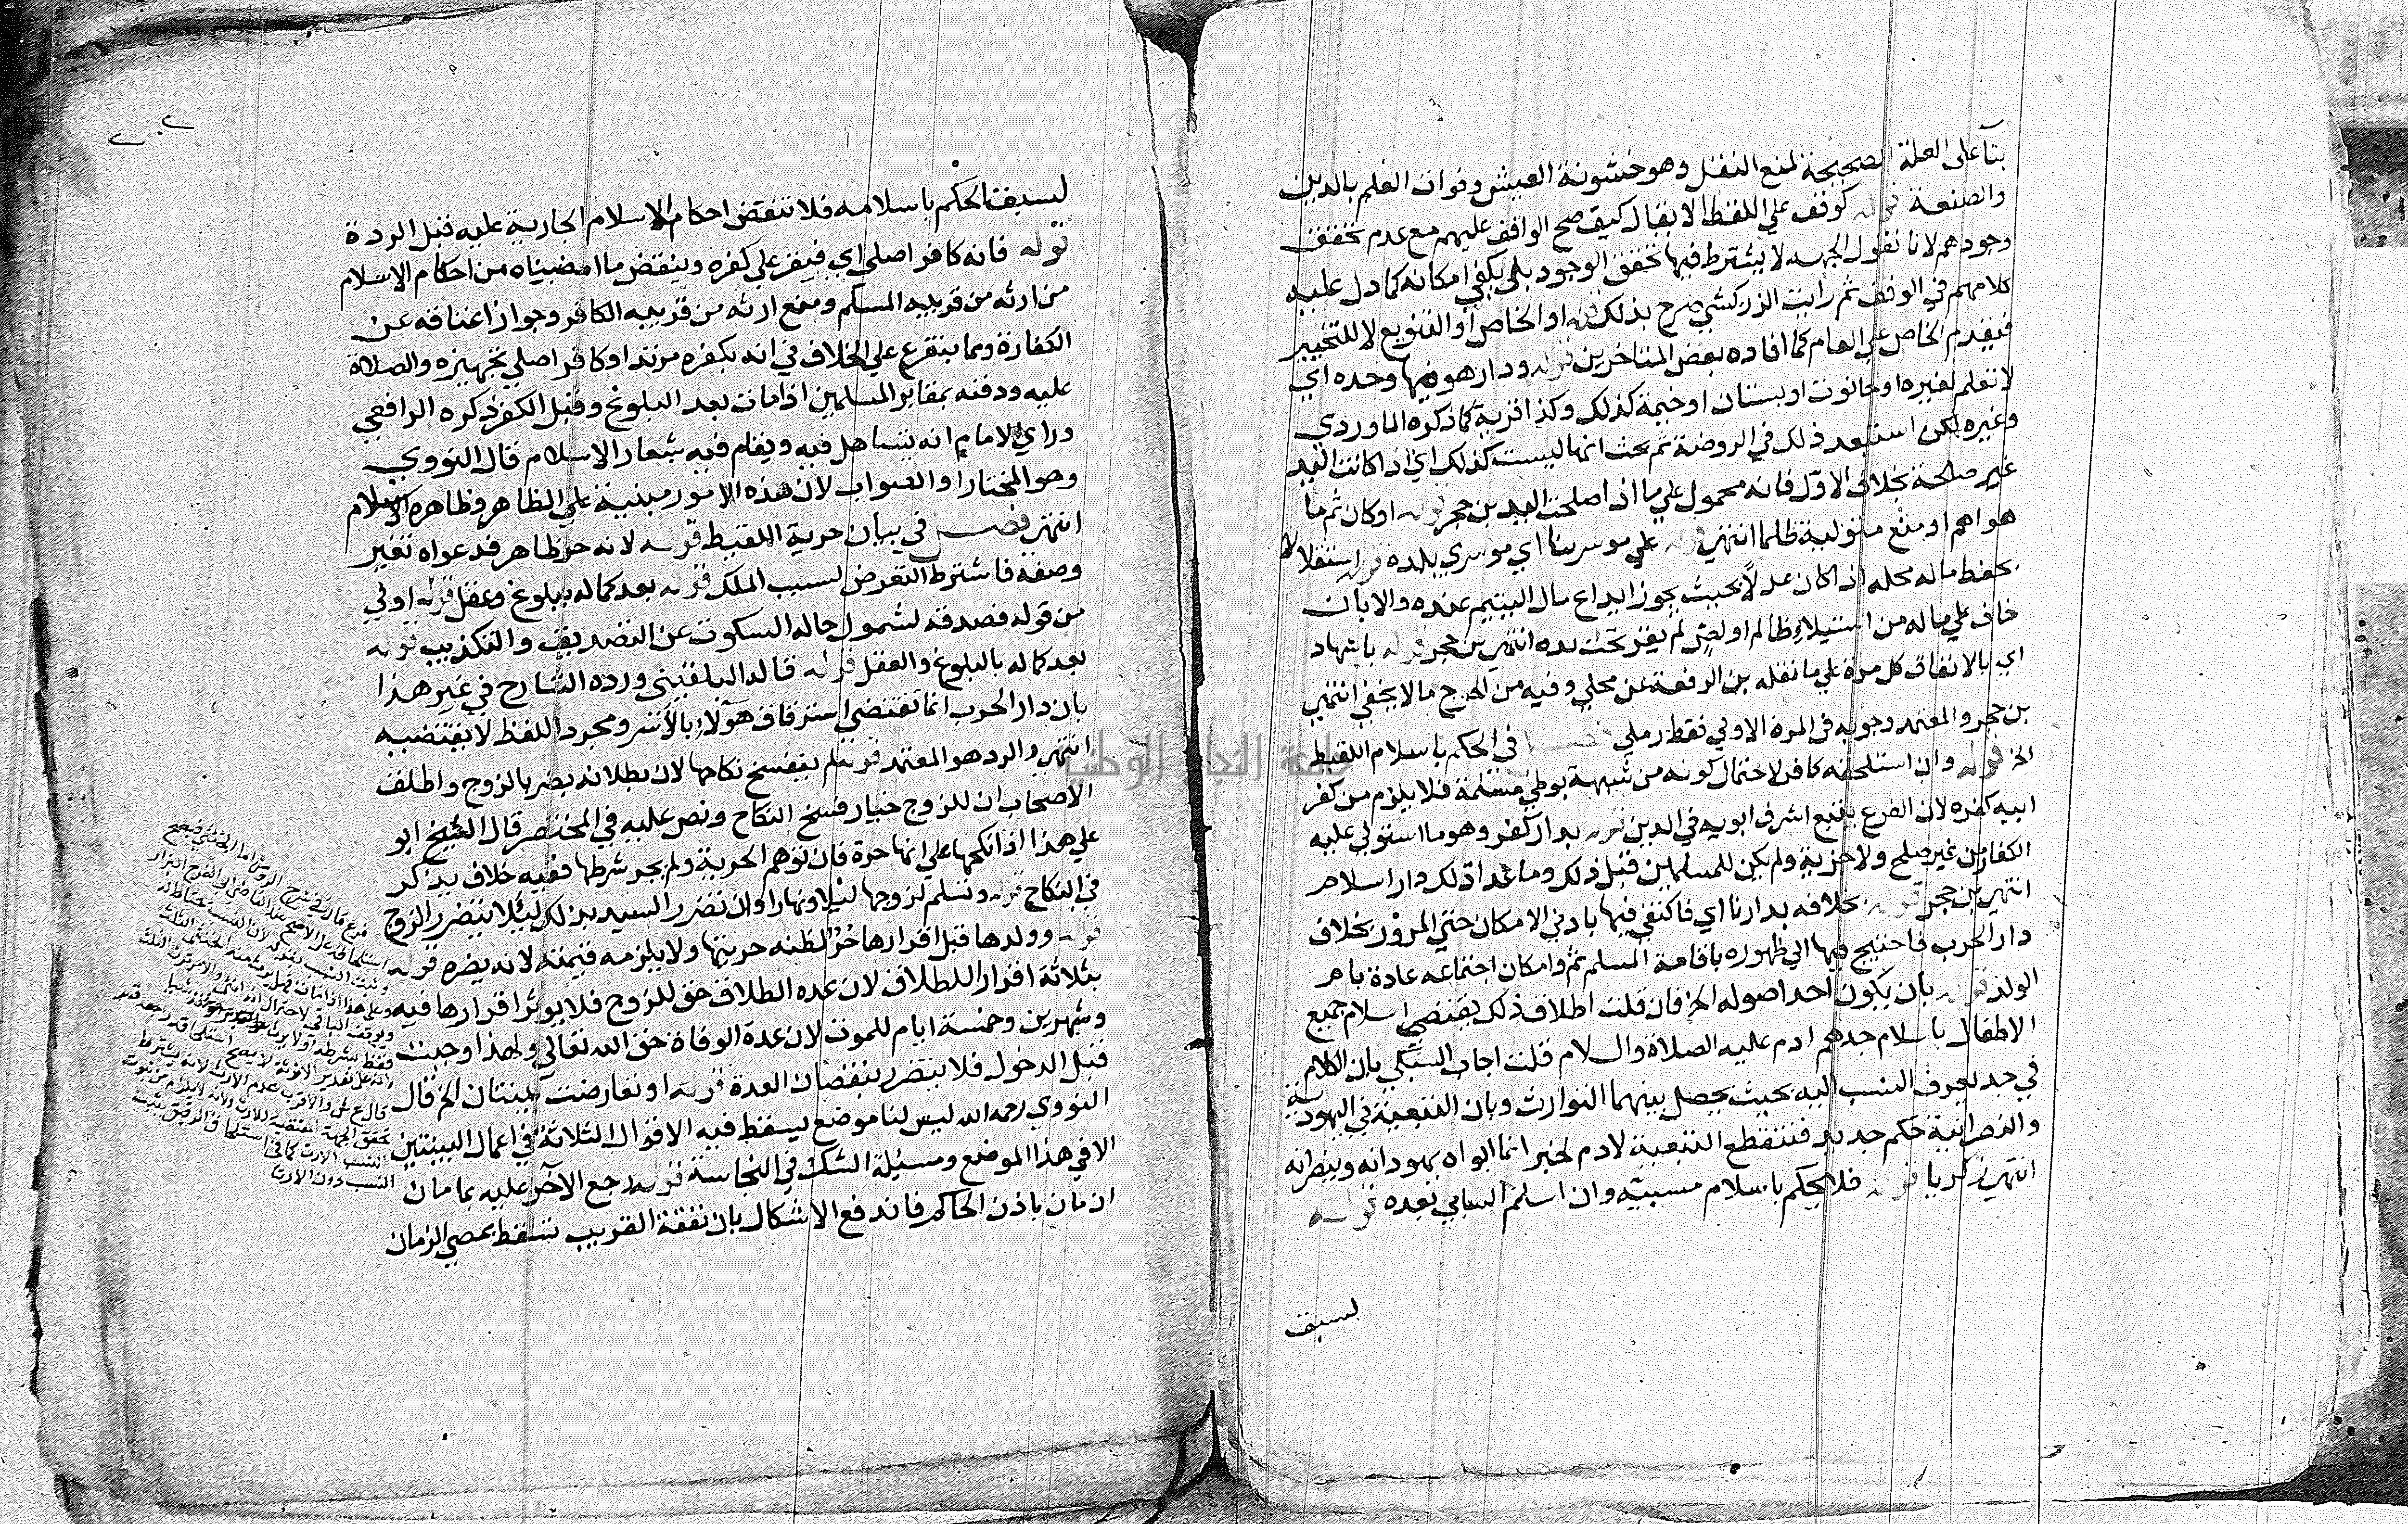 بنآ على العلة الصحيحة لمنع النقل وهو خشونة العيش وفوات العلم بالدين
والصنعة قوله كوقف علي اللقطا لا يقال كيف صح الوقف عليهم مع عدم تحقق
وجودهم لانا نقول الجهه لا يشترط فيها تحقق الوجود بل يكفي امكانه كما دل عليه
كلامهم في الوقف ثم رايت الزركشي صرح بذلك قوله او الخاص او التنويع لا للتخيير
فيقدم الخاص علي العام كما افاده بعض المتاخرين قوله ودار هو فيها وحده اي
لا تعلم لغيره او حانوت او بستان او خيمة كذلك وكذا قرية كما ذكره الماوردي
وغيره لكن استبعد ذلك في الروضة ثم بحث انها ليست كذلك اي اذا كانت اليد
غير صالحة بخلاف الاول فانه محمول علي ما اذا صلحت اليد بن حجر قوله او كان ثم ما
هو اهم او منع متوليه ظلما انتهي قوله علي موسرينا اي موسري بلده قوله استقلالا
بحفظ ماله محله اذا كان عدلاً بحيث يجوز ايداع مال اليتيم عنده والا بان
خاف علي ماله من استيلاء ظالم او لص لم يقر تحت يده انتهي بن حجر قوله باشهاد
اي بالانفاق كل مرة علي ما نقله بن الرفعة عن مجلي وفيه من الحرج ما لا يخفي انتهي
بن حجر والمعتمد وجوبه في المرة الاولي فقط رملي فصل في الحكم باسلام اللقيط
الخ قوله وان استلحقه كافر لاحتمال كونه من شبهة بوطي مسلمة فلا يلزم من كفر
ابيه كفره لان الفرع يتبع اشرف ابويه في الدين قوله بدار كفر وهو ما استولي عليه
الكفار من غير صلح ولا جزية ولم يكن للمسلمين قبل ذلك وما عدا ذلك دار اسلام
انتهي بن حجر قوله بخلافه بدارنا اي فاكتفي فيها بادني الامكان حتي المرور بخلاف
دار الحرب فاحتيج فيها الي ظهوره باقامة المسلم ثم وامكان اجتماعه عادة بام
الولد قوله بان يكون احد اصوله الخ فان قلت اطلاق ذلك يقتضي اسلام جميع
الاطفال باسلام جدهم ادم عليه الصلاة والسلام قلت اجاب السبكي بان الكلام
في جد يعرف النسب اليه بحيث يحصل بينهما التوارث وبان التبعية في اليهودية
والنصرانية حكم جديد فتنقطع التبعية لادم لخبر انما ابواه يهودانه وينصرانه
انتهي زكريا قوله فلا يحكم باسلام مسبيه وان اسلم السابي بعده قوله
لسبق
٢٠٢
لسبق الحكم باسلامه فلا تنقض احكام الاسلام الجارية عليه قبل الردة
قوله فانه كافر اصلي اي فيقر علي كفره وينقض ما امضيناه من احكام الاسلام
من ارثه من قريبه المسلم ومنع ارثه من قريبه الكافر وجواز اعتاقه عن
الكفارة ومما يتفرع علي الخلاف في انه بكفره مرتد او كافر اصلي تجهيزه والصلاة
عليه ودفنه بمقابر المسلمين اذا مات بعد البلوغ وقبل الكفر ذكره الرافعي
وراي الامام انه يتساهل فيه ويقام فيه شعار الاسلام قال النووي
وهو المختار او الصواب لان هذه الامور مبنية علي الظاهر وظاهره الاسلام
انتهي فصل في بيان حرية اللقيط قوله لانه حر ظاهر فدعواه تغير
وصفه فاشترط التعرض لسبب الملك قوله بعد كماله ببلوغ وعقل قوله اولي
من قوله فصدقه لشمول حاله السكوت عن التصديق والتكذيب قوله
بعد كماله بالبلوغ والعقل قوله قاله البلقيني ورده الشارح في غير هذا
بان دار الحرب انما تقتضي استرقاق هولاء بالاسر ومجرد اللفظ لا يقتضيه
انتهي والرد هو المعتمد قوله لم ينفسخ نكاحها لان بطلانه يضر بالزوج واطلق
الاصحاب ان للزوج خيار فسخ النكاح ونص عليه في المختصر قال الشيخ ابو
علي هذا اذا نكحها علي انها حرة فان توهم الحرية ولم يجر شرطها ففيه خلاف يذكر
في النكاح قوله وتسلم لزوجها ليلا ونهارا وان تضرر السيد بذلك ليلا يتضرر الزوج
قوله وولدها قبل اقرارها حرٌ لظنه حريتها ولا يلزمه قيمته لانه يضره قوله
بثلاثة اقراء للطلاق لان عده الطلاق حق للزوج فلا يوثر اقرارها فيه
وشهرين وخمسة ايام للموت لان عدة الوفاة حق الله تعالي ولهذا وجبت
قبل الدخول فلا يتضرر بنقصان العدة قوله او تعارضت بينتان الخ قال
النووي رحمه الله ليس لنا موضع يسقط فيه الاقوال الثلاثة في اعمال البينتين
الا في هذا الموضع ومسئلة الشك في النجاسة قوله رجع الآخر عليه بما مان
ان مان باذن الحاكم فاندفع الاشكال بان نفقة القريب تسقط بمضي الزمان
فرع قال في شرح الروض اما الخنثي فيصح
استلحاقه على الاصح عند القاضي ابي الفرج البزاز
ويثبت النسب بقوله لان النسب يحتاط له
وعلي هذا اذا مات فهل يرثه الخنثي الثلث
ويوقف الباقي لاحتمال انه انثي
قال ع ش والاقرب عدم الارث لانه يشترط
النسب دون الارث